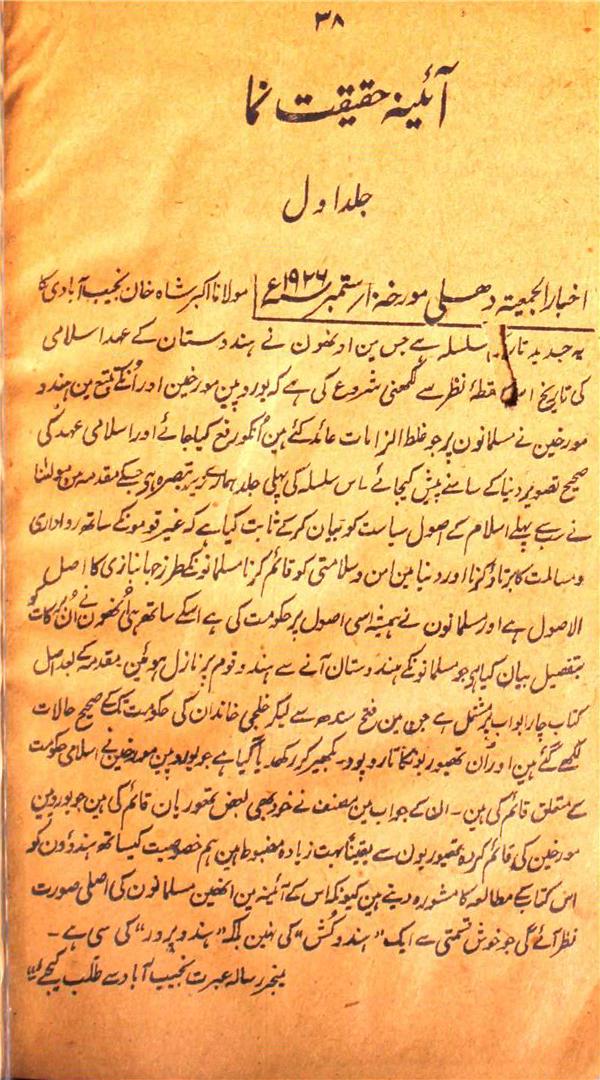 ۳۸
آئینہ حقیقت نما
جلد اول
اخبار الجمعیتہ دھلی مورخہ ۱۰ ستمبر سنہ ۱۹۲۶ء مولانا اکبر شاہ خان نجیب آبادی کا
یہ جدید سلسلہ ہے جس ین اونھون نے ہندوستان کے عہد اسلامی
کی تاریخ اس نقطۂ نظر سے لکھنی شروع کی ہے کہ یوروپین مورخین اور اُنکے متبع ین ہندو
مورخین نے مسلمانون پر جو غلط الزامات عائد کئے ہین اُنکو رفع کیا جائے اور اسلامی عہد کی
صحیح تصویر دنیا کے سامنے پیش کیجائے اس سلسلہ کی پہلی جلد ہمارے زیر تبصرہ ہی جسکے مقدمہ من مولٰنا
نے سب پہلے اسلام کے اصول سیاست کو بیان کرکے ثابت کیا ہے کہ غیر قومونکے ساتھ رواداری
و مسالمت کا برتاؤ کرنا اور دنیا مین امن و سلامتی کو قائم کرنا مسلمانونکے طرز جہانبانی کا اصل
الاصول ہے اور مسلمانون نے ہمیشہ اسی اصول پر حکومت کی ہے اسکے ساتھ ہی اُنھون نے اُن برکات کو
بتفصیل بیان کیا ہی جو مسلمانونکے ہندوستان آنے سے ہندو قوم پر نازل ہوئین مقدمہ کے بعد اصل
کتاب چار ابواب پر مشتمل ہے جن مین فتح سندھ سے لیکر خلجی خاندان کی حکومت تک کے صحیح حالات
لکھے گئے ہین اور اُن تھیوریونکا تار و پود بکھیر کر رکھدیا گیا ہے جو یوروپین مورخین نے اسلامی حکومت
کے متعلق قائم کی ہین۔ ان کے جواب مین مصنف نے خود بھی بعض تھیوریان قائم کی ہین جو یوروپین
مورخین کی قائم کردہ تھیوریون سے یقیناً بہت زیادہ مضبوط ہین ہم خصوصیت کیساتھ ہندؤون کو
اس کتاب کے مطالعہ کا مشورہ دیتے ہین کیونکہ اس کے آئینہ ین انھین مسلمانون کی اصلی صورت
نظر آئے گی جو خوش قسمتی سے ایک "ہندو کُش" کی نہین بلکہ "ہندو پرور" کی سی ہے۔
منیجر رسالہ عبرت نجیب آباد سے طلب کیجئے